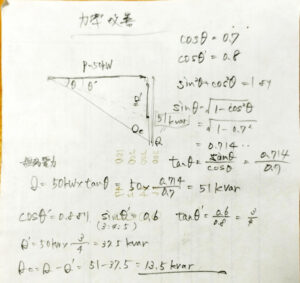 力率改善
cosθ = 0.7
cosθ' = 0.8
P=50kW
θ θ'
sin²θ+cos²θ = 1
sinθ = √1-cos²θ
= √1-0.7²
= 0.714...
51kvar
θ'
Qc
Q
tanθ = sinθ/cosθ = 0.714/0.7
Q = 50kW×tanθ = 50× 0.714/0.7 = 51kvar
cosθ' = 0.8より sinθ' = 0.6 tanθ' = 0.6/0.8 = 3/4
Q' = 50kW× 3/4 = 37.5kvar
Qc = Q - Q' = 51-37.5 = 13.5kvar